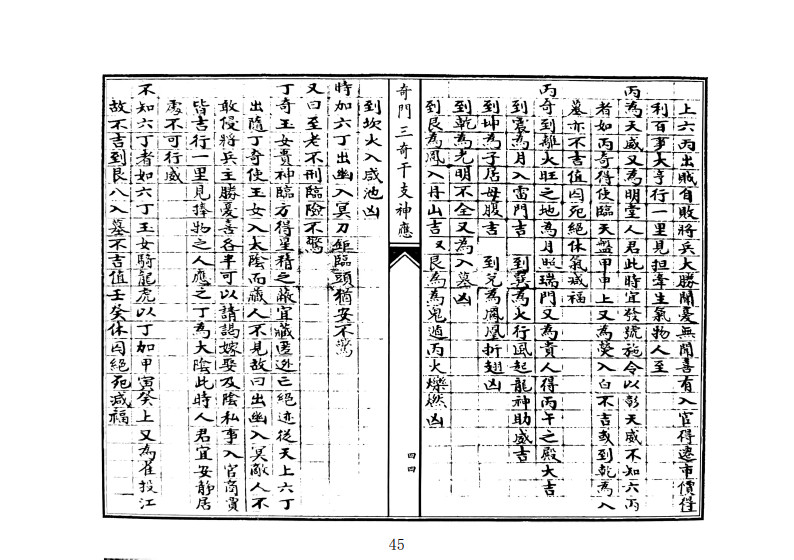 上六丙出賊自敗將兵大勝聞憂無聞喜有入官得遷市價得
利百事大亨行一里見担牽生氣物人至
丙為天威又為明堂人君此時宜發號施令以彰天威不知六丙
者如丙奇得使臨天盤甲申上又為熒入白不吉或到乾為入
墓亦不吉值囚死絕休氣減福
丙奇到離火旺之地為月照端門又為貴人得丙午之殿大吉
到震為月入雷門吉　到巽為火行風起龍神助威吉
到坤為子居母腹吉　到兌為鳳凰折翅凶
到乾為光明不全又為入墓凶
到艮為鳳入丹山吉又艮為為鬼遁丙火爍然凶
奇門三奇干支神應
四四
到坎火入咸池凶
時加六丁出幽入冥刀鉅臨頭猶安不驚
又曰至老不刑臨險不驚
丁奇玉女貴神臨方得星精之蔽宜藏匿逃亡絕迹從天上六丁
出隨丁奇使玉女入太陰而藏人不見故曰出幽入冥敵人不
敢侵將兵主勝憂喜各半可以請謁嫁娶及陰私事入官商賈
皆吉行一里見捧物之人應之丁為大陰此時人君宜安靜居
處不可行威
不知六丁者如六丁玉女騎龍虎以丁加甲寅癸上又為雀投江
故不吉到艮八入墓不吉值壬癸休囚絕死減福
45